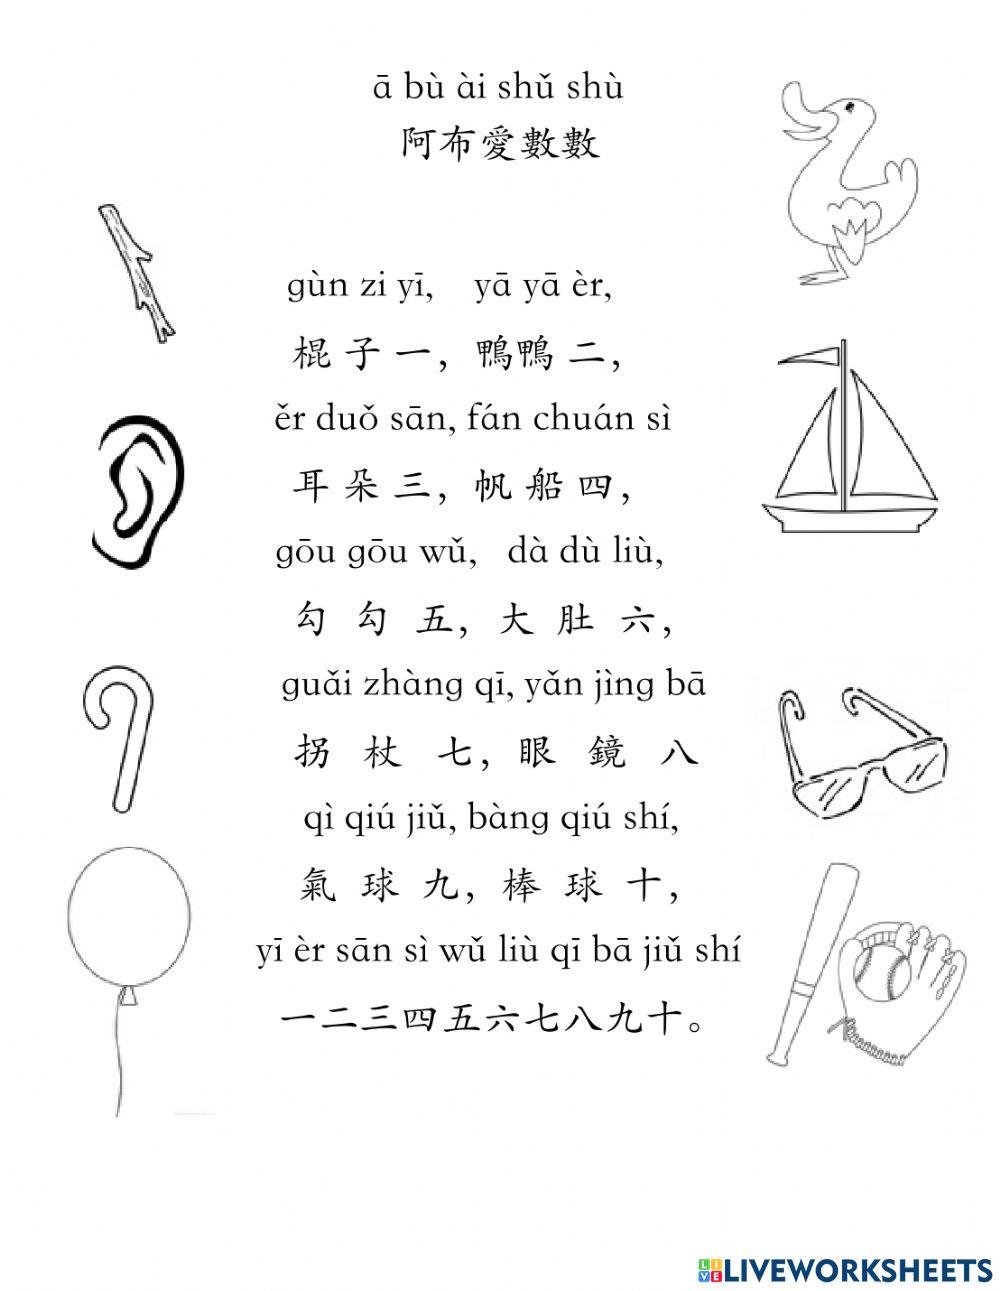 ā bù ài shǔ shù
阿布愛數數
gùn zi yī, yā yā èr,
棍 子 一，鴨鴨 二，
ěr duǒ sān, fán chuán sì
耳 朵 三，帆 船 四，
gōu gōu wǔ, dà dù liù,
勾 勾 五，大 肚 六，
guǎi zhàng qī, yǎn jìng bā
拐 杖 七，眼 鏡 八
qì qiú jiǔ, bàng qiú shí,
氣 球 九，棒 球 十，
yī èr sān sì wǔ liù qī bā jiǔ shí
一二三四五六七八九十。
LIVE LIVEWORKSHEETS